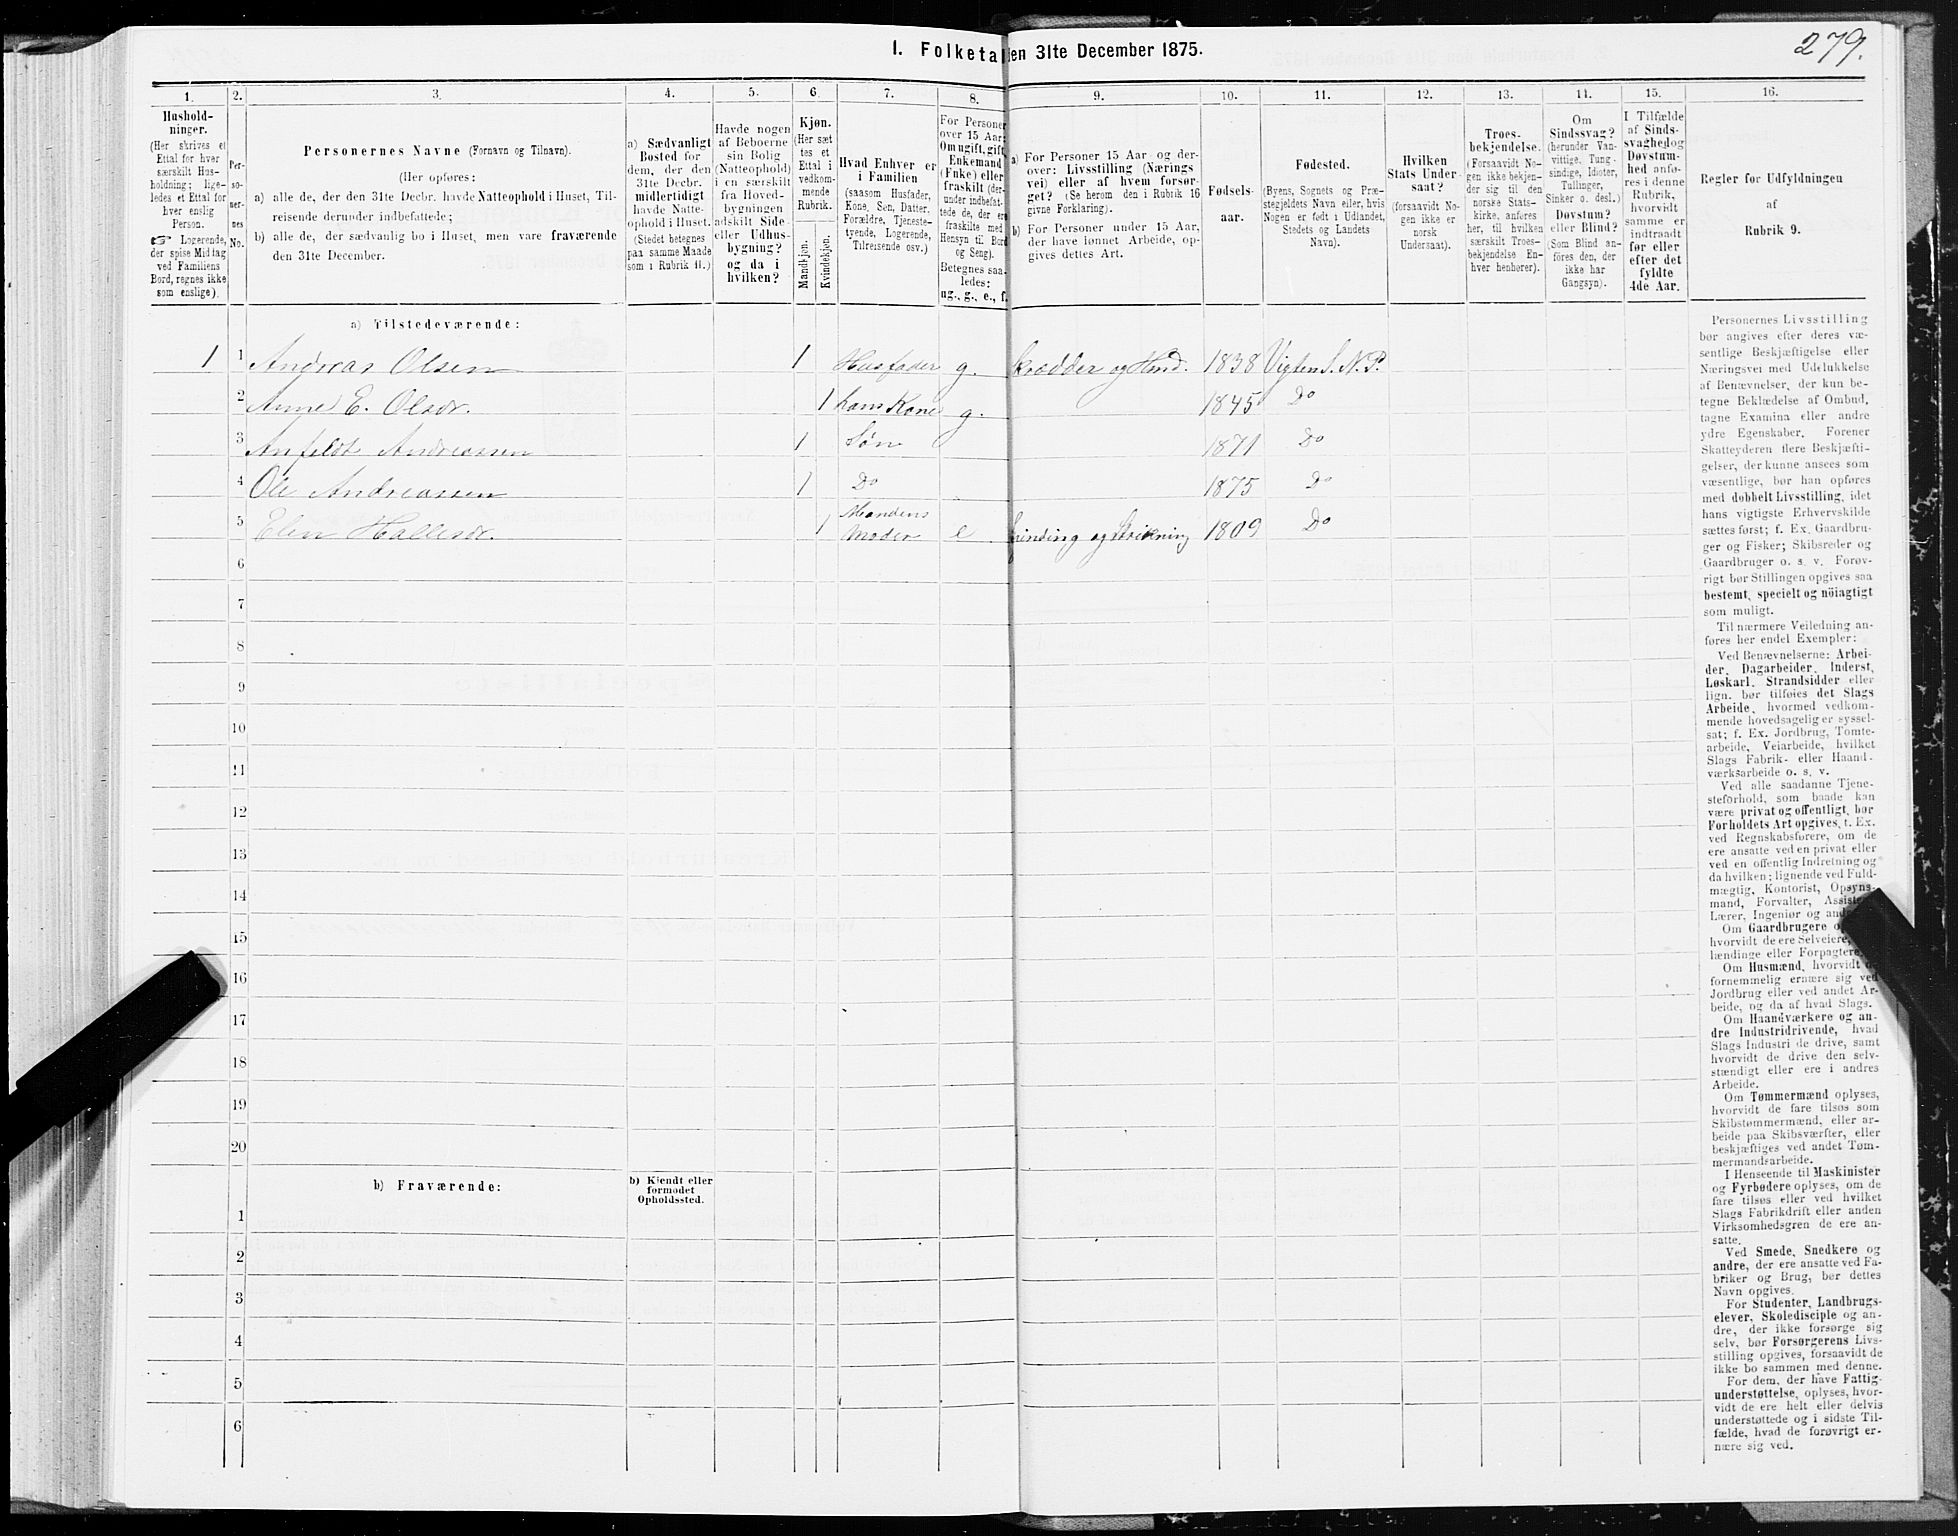 279.
I. Folketal den 31te December 1875.
1. 2. 3. 4. 5. 6. 7. 8. 9. 10. 11. 12. 13. 14. 15. 16.
Hushold-
ninger.
(Her skrives et
Ettal for hver
særskilt Hus-
holdning; lige-
ledes et Ettal for
hver enslig
Person.
☞ Logerende,
der spise Middag
ved Familiens
Bord, regnes ikke
som enslige).
Per-
so-
ner-
nes
No.
Personernes Navne (Fornavn og Tilnavn).
(Her opføres:
a) alle de, der den 31te Decbr. havde Natteophold i Huset, Til-
reisende derunder indbefattede;
b) alle de, der sædvanlig bo i Huset, men vare fraværende
den 31te December.
a) Sædvanligt
Bosted for
dem, der den
31te Decbr.
midlertidigt
havde Natte-
ophold i Huset.
(Stedet betegnes
paa samme Maade
som i Rubrik 11.)
Havde nogen
af Beboerne
sin Bolig
(Natteophold)
i en særskilt
fra Hoved-
bygningen
adskilt Side-
eller Udhus-
bygning?
og da i
hvilken?
Kjøn.
(Her sæt
tes et
Ettal i
vedkom-
mende
Rubrik.
Mandkjøn.
Kvindekjøn.
Hvad Enhver er
i Familien
(saasom Husfader,
Kone, Søn, Datter,
Forældre, Tjeneste-
tyende, Logerende,
Tilreisende osv.)
For Personer
over 15 Aar:
Om ugift, gift,
Enkemand
(Enke) eller
fraskilt (der-
under indbefat-
tede de, der ere
fraskilte med
Hensyn til Bord
og Seng).
Betegnes saa-
ledes:
ug., g., e., f.
a) For Personer 15 Aar og der-
over: Livsstilling (Nærings
vei) eller af hvem forsør-
get? (Se herom den i Rubrik 16
givne Forklaring).
b) For Personer under 15 Aar,
der have lønnet Arbeide, op-
gives dettes Art.
Fødsels-
aar.
Fødested.
(Byens, Sognets og Præ-
stegjeldets Navn eller, hvis
Nogen er født i Udlandet,
Stedets og Landets
Navn).
Hvilken
Stats Under-
saat?
(forsaavidt No-
gen ikke er
norsk
Undersaat).
Troes-
bekjendelse.
(Forsaavidt No-
gen ikke bekjen-
der sig til den
norske Stats-
kirke, anføres
her, til hvilken
særskilt Troes-
bekjendelse En-
hver henhører).
Om
Sindssvag?
(herunder Van-
vittige, Tung-
sindige, Idioter,
Tullinger,
Sinker o. desl.)
Døvstum?
eller Blind?
(Som Blind an-
føres den, der
ikke har
Gangsyn).
I Tilfælde
af Sinds-
svaghed og
Døvstum-
hed anfø-
res i denne
Rubrik,
hvorvidt
samme er
indtraadt
før eller
efter det
fyldte
4de Aar.
Regler for Udfyldningen
af
Rubrik 9.
a) Tilstedeværende:
1 1 Andreas Olsen 1 Husfader g. Skrædder og Hmd. 1838 Vigten S. N. P.
2 Anne E. Olsdr. 1 hans Kone g. 1845 Do
3 Anfeldt Andreassen 1 Søn 1871 Do
4 Ole Andreassen 1 Do 1875 Do
5 Elen Hallesdr. 1 Mandens Moder e Spinding og Strikning 1809 Do
6
7
8
9
10
11
12
13
14
15
16
17
18
19
20
b) Fraværende:
b) Kjendt eller
formodet
Opholdssted.
1
2
3
4
5
6
Personernes Livsstilling
bør angives efter deres væ-
sentlige Beskjæftigelse eller
Næringsvei med Udelukkelse
af Benævnelser, der kun be-
tegne Beklædelse af Ombud,
tagne Examina eller andre
ydre Egenskaber. Forener
Skatteyderen flere Beskjæfti-
gelser, der kunne ansees som
væsentlige, bør han opføres
med dobbelt Livsstilling, idet
hans vigtigste Erhvervskilde
sættes først; f. Ex. Gaardbru-
ger og Fisker; Skibsreder og
Gaardbruger o. s. v. Forøv-
rigt bør Stillingen opgives saa
bestemt, specielt og nöiagtigt
som muligt.
Til nærmere Veiledning an-
føres her endel Exempler:
Ved Benævnelserne: Arbei-
der, Dagarbeider, Inderst,
Løskarl, Strandsidder eller
lign. bør tilføies det Slags
Arbeide, hvormed vedkom-
mende hovedsagelig er syssel-
sat; f. Ex. Jordbrug, Tomte-
arbeide, Veiarbeide, hvilket
Slags Fabrik- eller Haand-
værksarbeide o. s. v.
Ved alle saadanne Tjene-
steforhold, som baade kan
være privat og offentligt, bør
Forholdets Art opgives, t. Ex.
ved Regnskabsførere, om de
ere ansatte ved en privat eller
ved en offentlig Indretning og
da hvilken; lignende ved Fuld-
mægtig, Kontorist, Opsyns-
mand, Forvalter, Assistent,
Lærer, Ingeniør og andre.
Om Gaardbrugere
hvorvidt de ere Selveiere,
lændinge eller Forpagtere.
Om Husmænd, hvorvidt de
fornemmelig ernære sig ved
Jordbrug eller ved andet Ar-
beide, og da af hvad Slags.
Om Haandværkere og an-
dre Industridrivende, hvad
Slags Industri de drive, samt
hvorvidt de drive den selv-
stændigt eller ere i andres
Arbeide.
Om Tømmermænd oplyses,
hvorvidt de fare tilsøs som
Skibstømmermænd, eller ar-
beide paa Skibsværfter, eller
beskjæftiges ved andet Tøm-
mermandsarbeide.
I Henseende til Maskinister
og Fyrbødere oplyses, om de
fare tilsøs eller ved hvilket
Slags Fabrikdrift eller anden
Virksomhedsgren de ere an-
satte.
Ved Smede, Snedkere og
andre, der ere ansatte ved Fa-
briker og Brug, bør dettes
Navn opgives.
For Studenter, Landbrugs-
elever, Skoledisciple og an-
dre, der ikke forsørge sig
selv, bør Forsørgerens Livs-
stilling opgives, forsaavidt de
ikke bo sammen med denne.
For dem, der have Fattig-
understøttelse, oplyses, hvor-
vidt de ere helt eller delvis
understøttede og i sidste Til-
fælde, hvad de forøvrigt er-
nære sig ved.